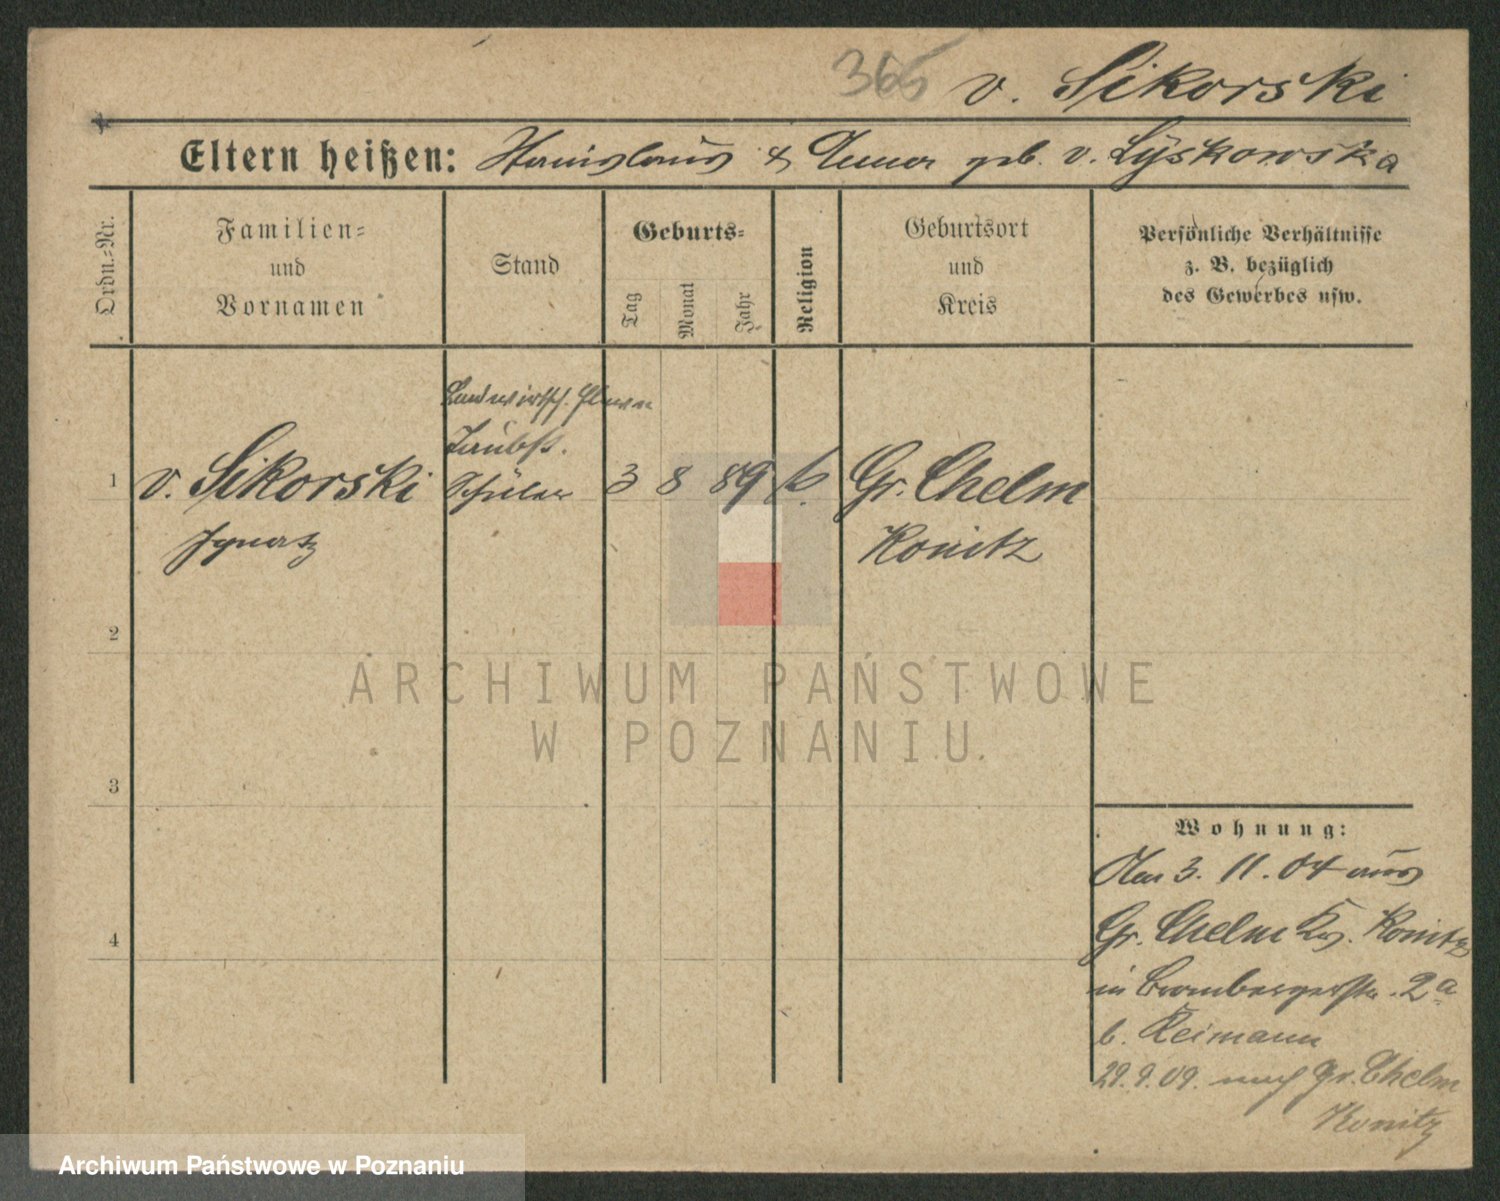 365 v. Sikorski
Eltern heißen: Stanislaus & Anna geb. v. Lyskowska
Ordn.-Nr.
Familien-
und
Vornamen
Stand
Geburts-
Tag
Monat
Jahr
Religion
Geburtsort
und
Kreis
Persönliche Verhältnisse
z. B. bezüglich
des Gewerbes usw.
Landwirtsch. Eleve
Taubst.
1 v. Sikorski Schüler 3 8 89 k. Gr. Chelm
Ignatz Konitz
2
3
4
Wohnung:
Am 3. 11. 04 aus
Gr. Chelm Krs. Konitz
in Brombergerstr. 2a
b. Reimann
29. 9. 09. nach Gr. Chelm
Konitz
ARCHIWUM PAŃSTWOWE
W POZNANIU
Archiwum Państwowe w Poznaniu